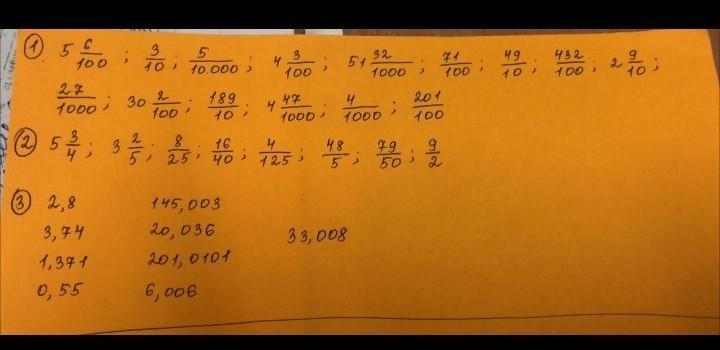 ① 5 6/100 ; 3/10 ; 5/10.000 ; 4 3/100 ; 51 32/1000 ; 71/100 ; 49/10 ; 432/100 ; 2 9/10 ;
27/1000 ; 30 2/100 ; 189/10 ; 4 47/1000 ; 4/1000 ; 201/100
② 5 3/4 ; 3 2/5 ; 8/25 ; 16/40 ; 4/125 ; 48/5 ; 79/50 ; 9/2
③ 2,8 145,003
3,74 20,036 33,008
1,371 201,0101
0,55 6,006